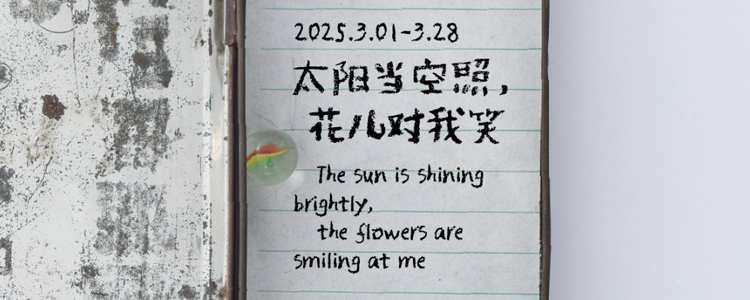 2025.3.01-3.28
太阳当空照，
花儿对我笑
The sun is shining
brightly,
the flowers are
smiling at me